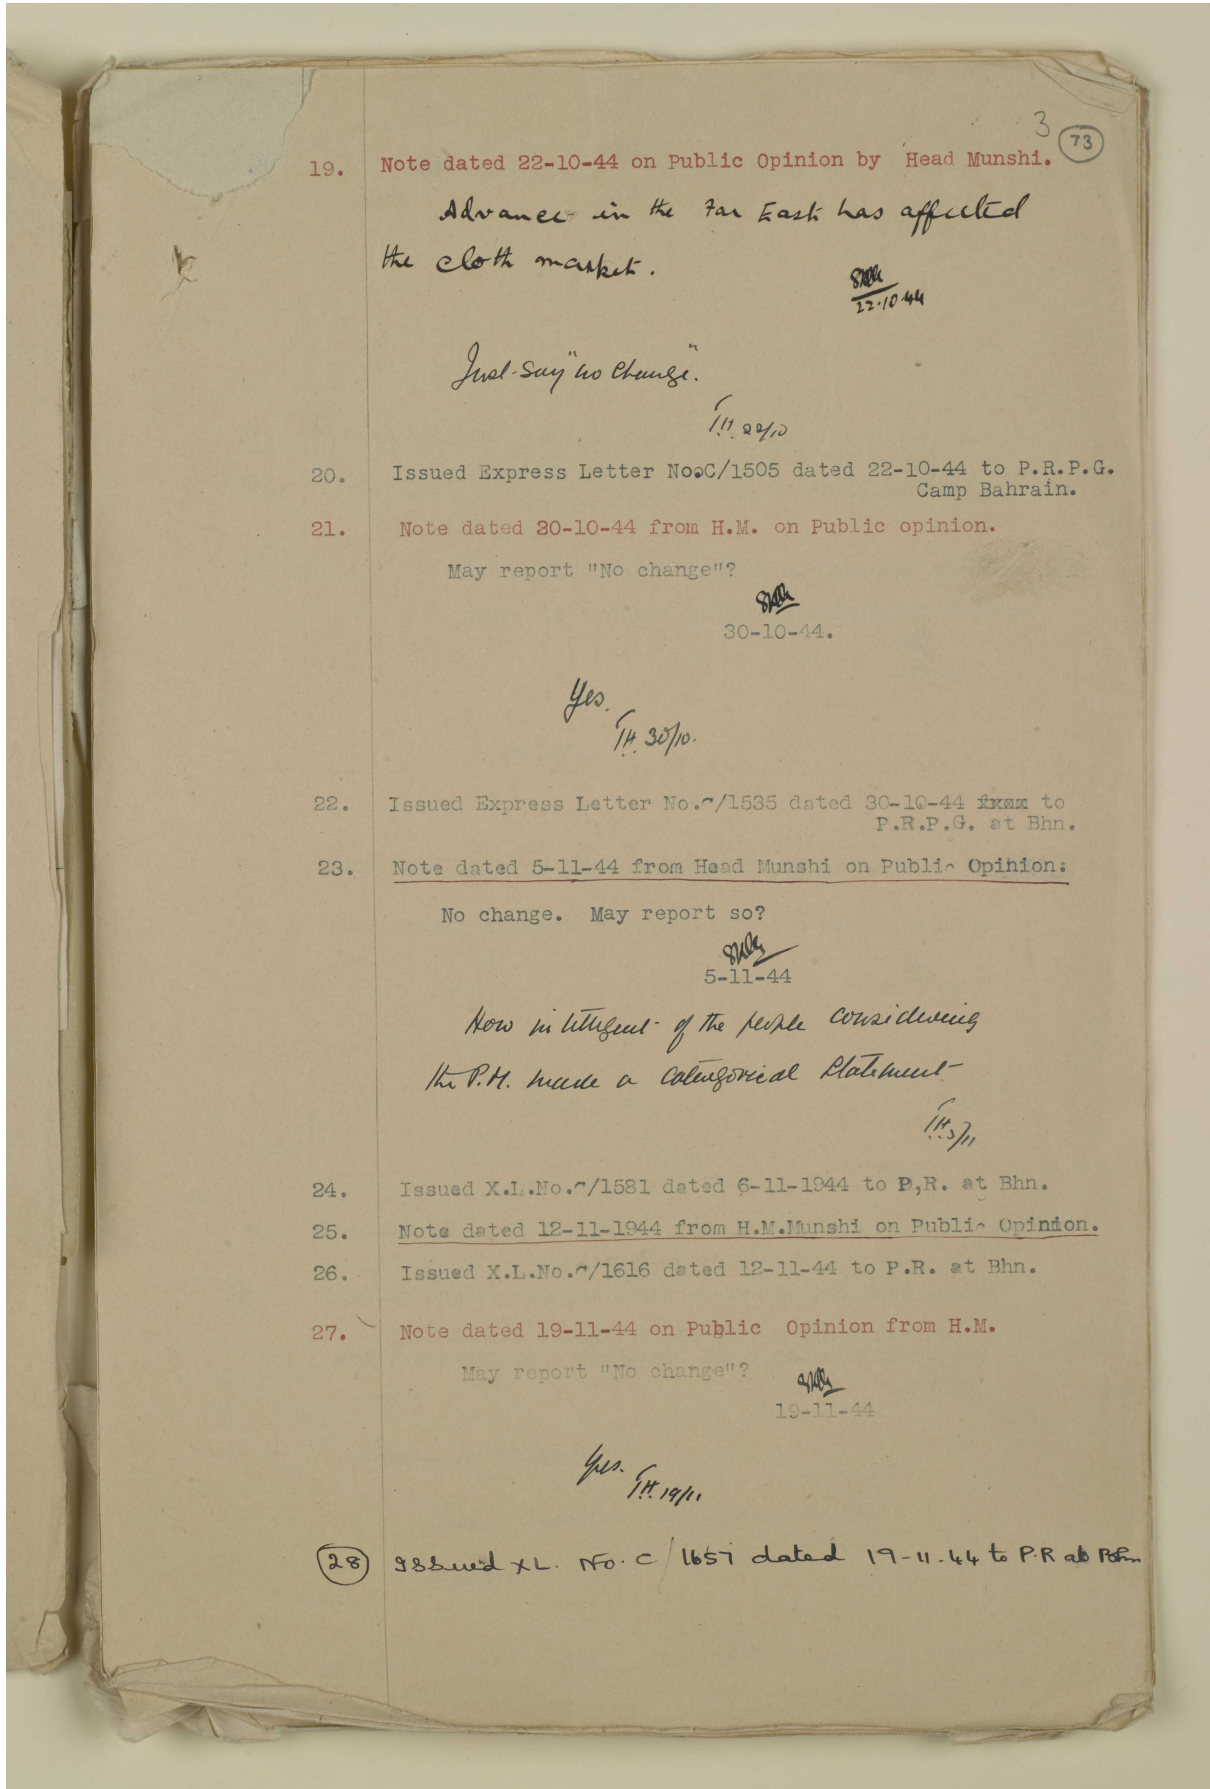 3
73
19. Note dated 22-10-44 on Public Opinion by Head Munshi.
Advance in the Far East has affected
the cloth market.
22.10.44
Just say "no change".
T.H. 22/10
20. Issued Express Letter No.C/1505 dated 22-10-44 to P.R.P.G.
Camp Bahrain.
21. Note dated 30-10-44 from H.M. on Public opinion.
May report "No change"?
30-10-44.
Yes.
T.H. 30/10.
22. Issued Express Letter No.C/1535 dated 30-10-44 to
P.R.P.G. at Bhn.
23. Note dated 5-11-44 from Head Munshi on Public Opinion:
No change. May report so?
5-11-44
How intelligent of the people considering
the P.M. made a categorical statement
T.H. 5/11
24. Issued X.L.No.C/1581 dated 6-11-1944 to P,R. at Bhn.
25. Note dated 12-11-1944 from H.M.Munshi on Public Opinion.
26. Issued X.L.No.C/1616 dated 12-11-44 to P.R. at Bhn.
27. Note dated 19-11-44 on Public Opinion from H.M.
May report "No change"?
19-11-44
Yes.
T.H. 19/11
28 Issued XL. No. C/1657 dated 19-11-44 to P.R at Bahn